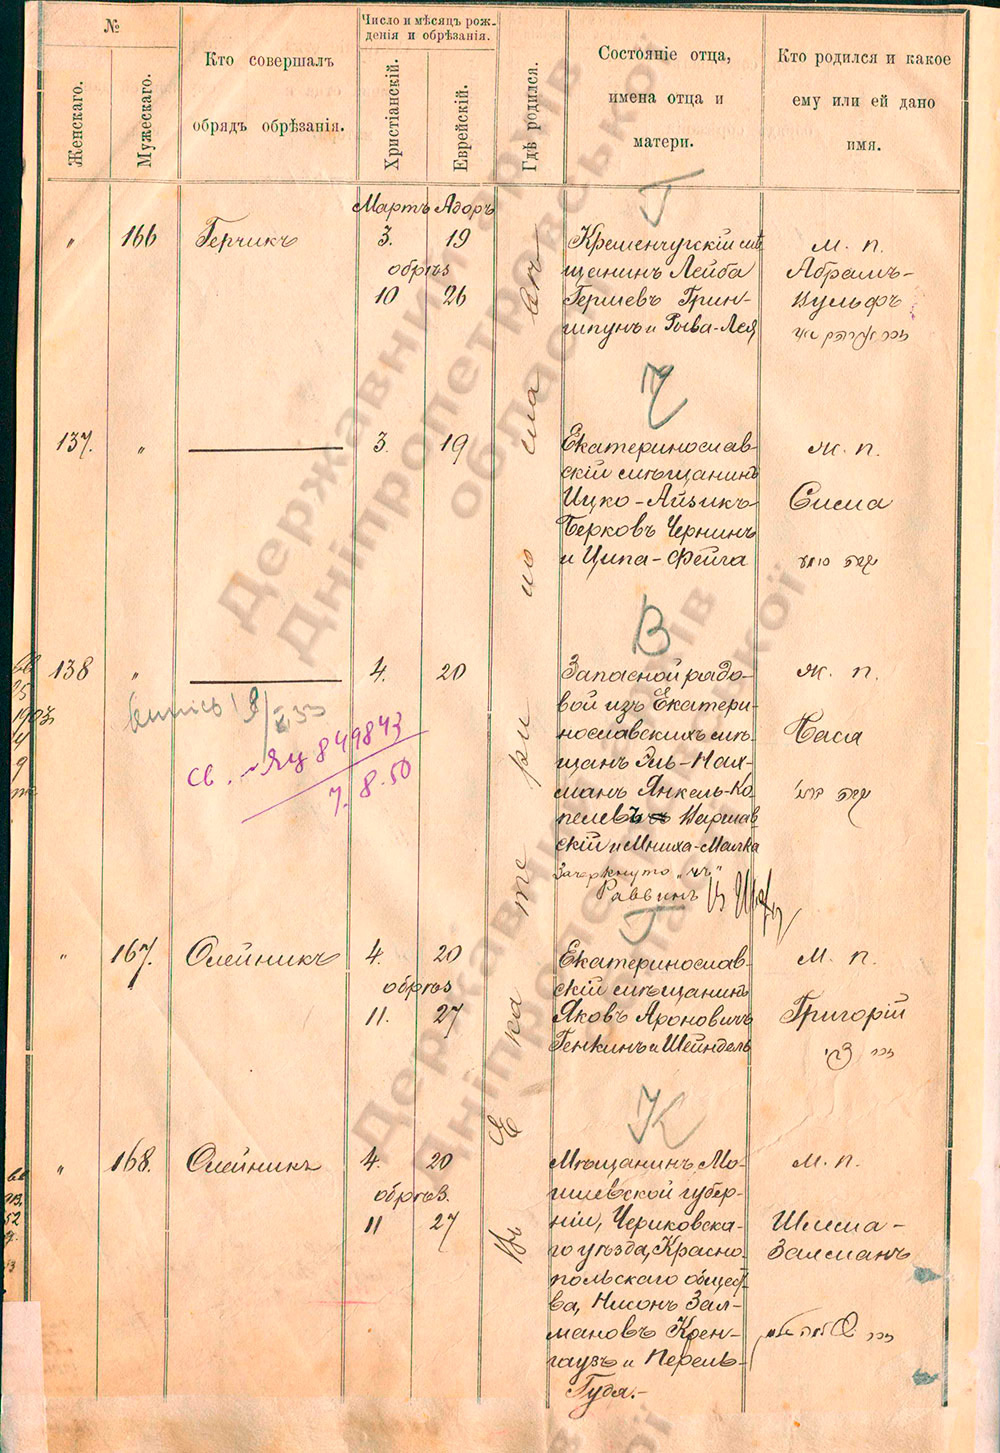 №
Женскаго.
Мужескаго.
Кто совершалъ
обрядъ обрѣзанія.
Число и мѣсяцъ рож-
денія и обрѣзанія.
Христіанскій.
Еврейскій.
Гдѣ родился.
Состояніе отца,
имена отца и
матери.
Кто родился и какое
ему или ей дано
имя.
Мартъ Адоръ
Г
" 166 Герчикъ 3. 19
обрѣз
10 26
Кременчугскій мѣ
щанинъ Лейба
Гершевъ Грин-
шпунъ и Рыва-Лея
м. п.
Абрамъ-
Вульфъ
Ч
137. " 3. 19
Екатеринослав-
скій мѣщанинъ
Ицко-Айзикъ
Берковъ Чернинъ
и Ципа-Фейга
ж. п.
Сима
В
138 " 4. 20
Запасной рядо-
вой изъ Екатери-
нославскихъ мѣ-
щанъ Эль-Нах-
манъ Янкель-Ко
пелевъ Варшав
скій и Мниха-Малка
Зачеркнуто „чъ"
Раввинъ
ж. п.
Бася
св. ЯЦ 849843
7. 8. 50
Г
" 167. Олейникъ 4. 20
обрѣз
11. 27
Екатеринослав-
скій мѣщанинъ
Яковъ Ароновичъ
Генкинъ и Шейндель
м. п.
Григорій
К
" 168. Олейникъ 4. 20
обрѣз.
11 27
Мѣщанинъ Мо-
гилевской губер-
ніи, Чериковска-
го уѣзда, Красно-
польскаго общест
ва, Нисонъ Зал-
мановъ Крен-
гаузъ и Перель-
Гудя.-
м. п.
Шлема-
Залманъ
Въ Екатеринославѣ
Державний архів
Дніпропетровської
області
Державний архів
Дніпропетровської
області